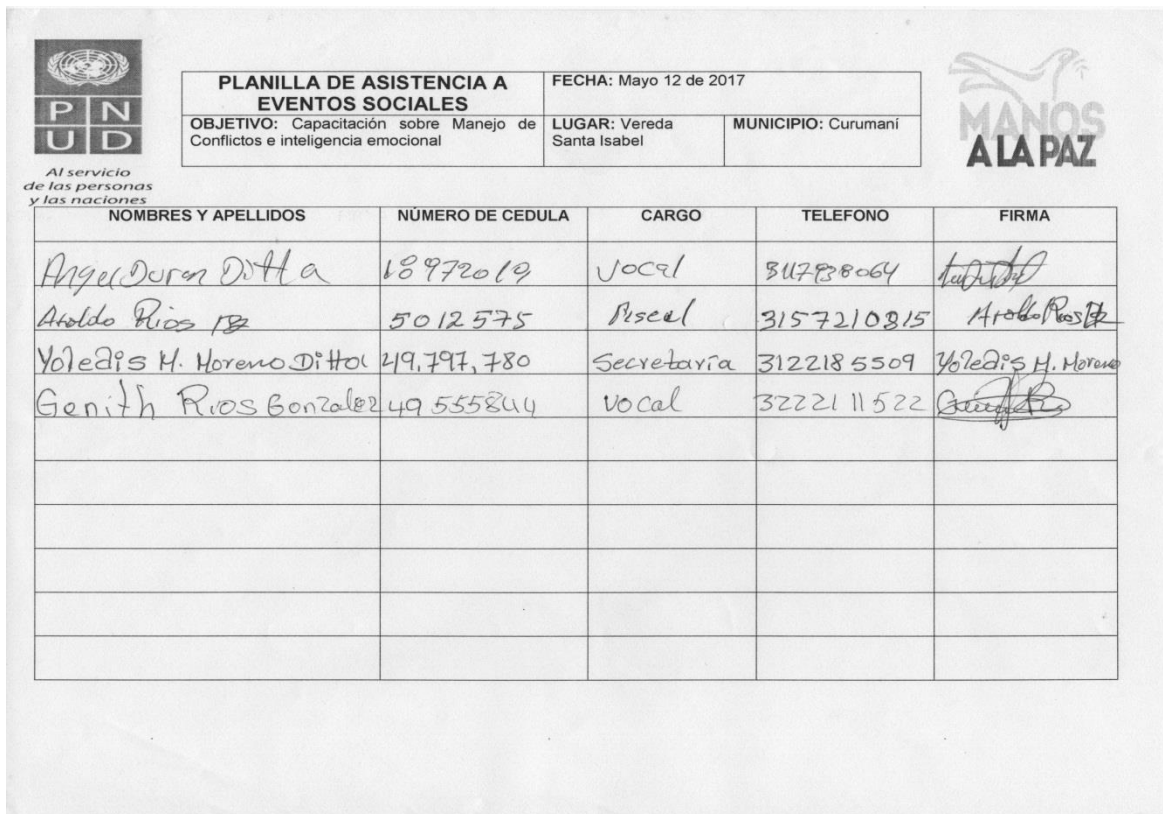 P N
U D
Al servicio
de las personas
y las naciones
PLANILLA DE ASISTENCIA A
EVENTOS SOCIALES
FECHA: Mayo 12 de 2017
OBJETIVO: Capacitación sobre Manejo de
Conflictos e inteligencia emocional
LUGAR: Vereda
Santa Isabel
MUNICIPIO: Curumaní
MANOS
A LA PAZ
NOMBRES Y APELLIDOS NÚMERO DE CEDULA CARGO TELEFONO FIRMA
Angel Duran Ditta 18972019 Vocal 3117938064
Aroldo Rios 5012575 Fiscal 3157210815 Aroldo Rios
Yoledis M. Moreno Ditta 49,797,780 Secretaría 3122185509 Yoledis M. Moreno
Genith Rios Gonzalez 49555844 vocal 3222111522